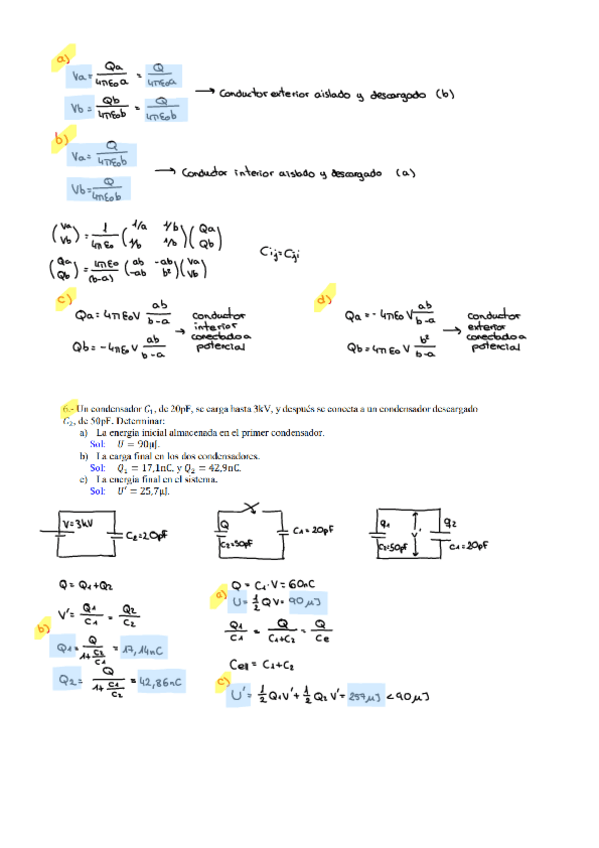 a)
Va = Qa/4πε₀a = Q/4πε₀a
Vb = Qb/4πε₀b = Q/4πε₀b → Conductor exterior aislado y descargado (b)
b)
Va = Q/4πε₀b
Vb = Q/4πε₀b → Conductor interior aislado y descargado (a)
(Va Vb) = 1/4πε₀ (1/a 1/b 1/b 1/b)(Qa Qb)
Cij = Cji
(Qa Qb) = 4πε₀/(b-a) (ab -ab -ab b²)(Va Vb)
c)
Qa = 4πε₀V ab/b-a
Qb = -4πε₀V ab/b-a
→ conductor interior conectado a potencial
d)
Qa = -4πε₀V ab/b-a
Qb = 4πε₀V b²/b-a
→ conductor exterior conectado a potencial
6.- Un condensador C₁, de 20pF, se carga hasta 3kV, y después se conecta a un condensador descargado
C₂, de 50pF. Determinar:
a) La energía inicial almacenada en el primer condensador.
Sol: U = 90μJ.
b) La carga final en los dos condensadores.
Sol: Q₁ = 17,1nC, y Q₂ = 42,9nC.
c) La energía final en el sistema.
Sol: U′ = 25,7μJ.
V=3kV
C₂=20pF
Q
C₂=50pF
C1=20pF
q1
V'
q2
C₂=50pF
C1=20pF
Q = Q1+Q2
V' = Q1/C1 = Q2/C2
b)
Q1 = Q/1+C2/C1 = 17,14nC
Q2 = Q/1+C1/C2 = 42,86nC
Q = C1·V = 60nC
a)
U = 1/2 QV = 90μJ
Q1/C1 = Q/C1+C2 = Q/Ce
Ceq = C1+C2
c)
U' = 1/2 Q1V' + 1/2 Q2V' = 257μJ < 90μJ